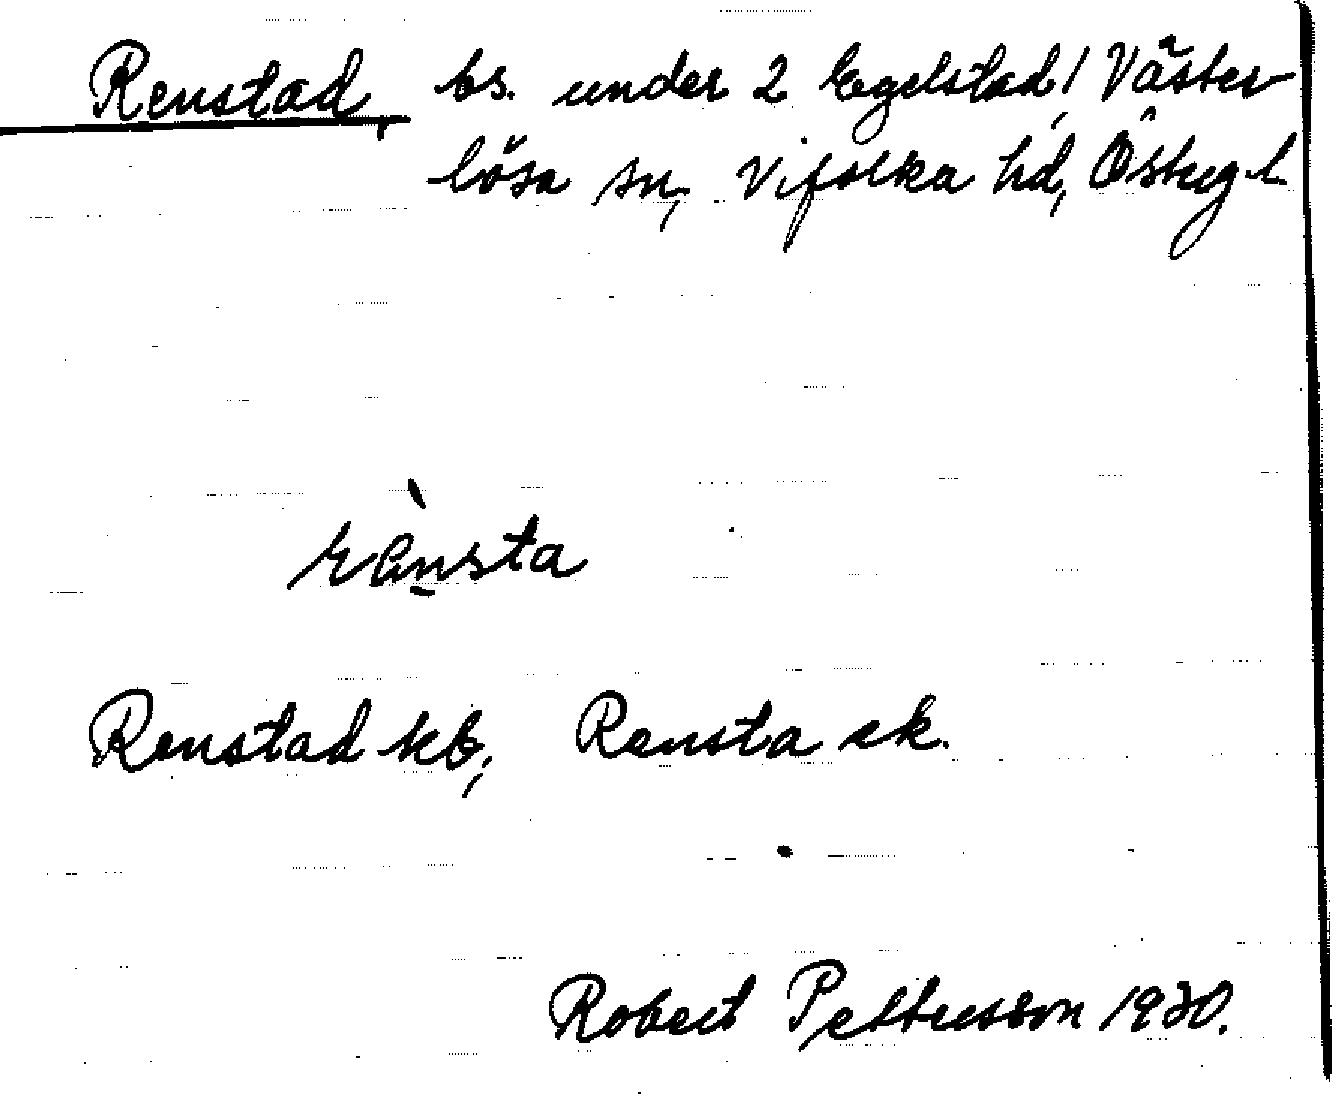 Renstad, bs. under 2 Egelstad, Väster-
lösa sn, Vifolka hd, Östergl.
rä̀nsta
Renstad kb, Rensta ek.
Robert Pettersson 1930.